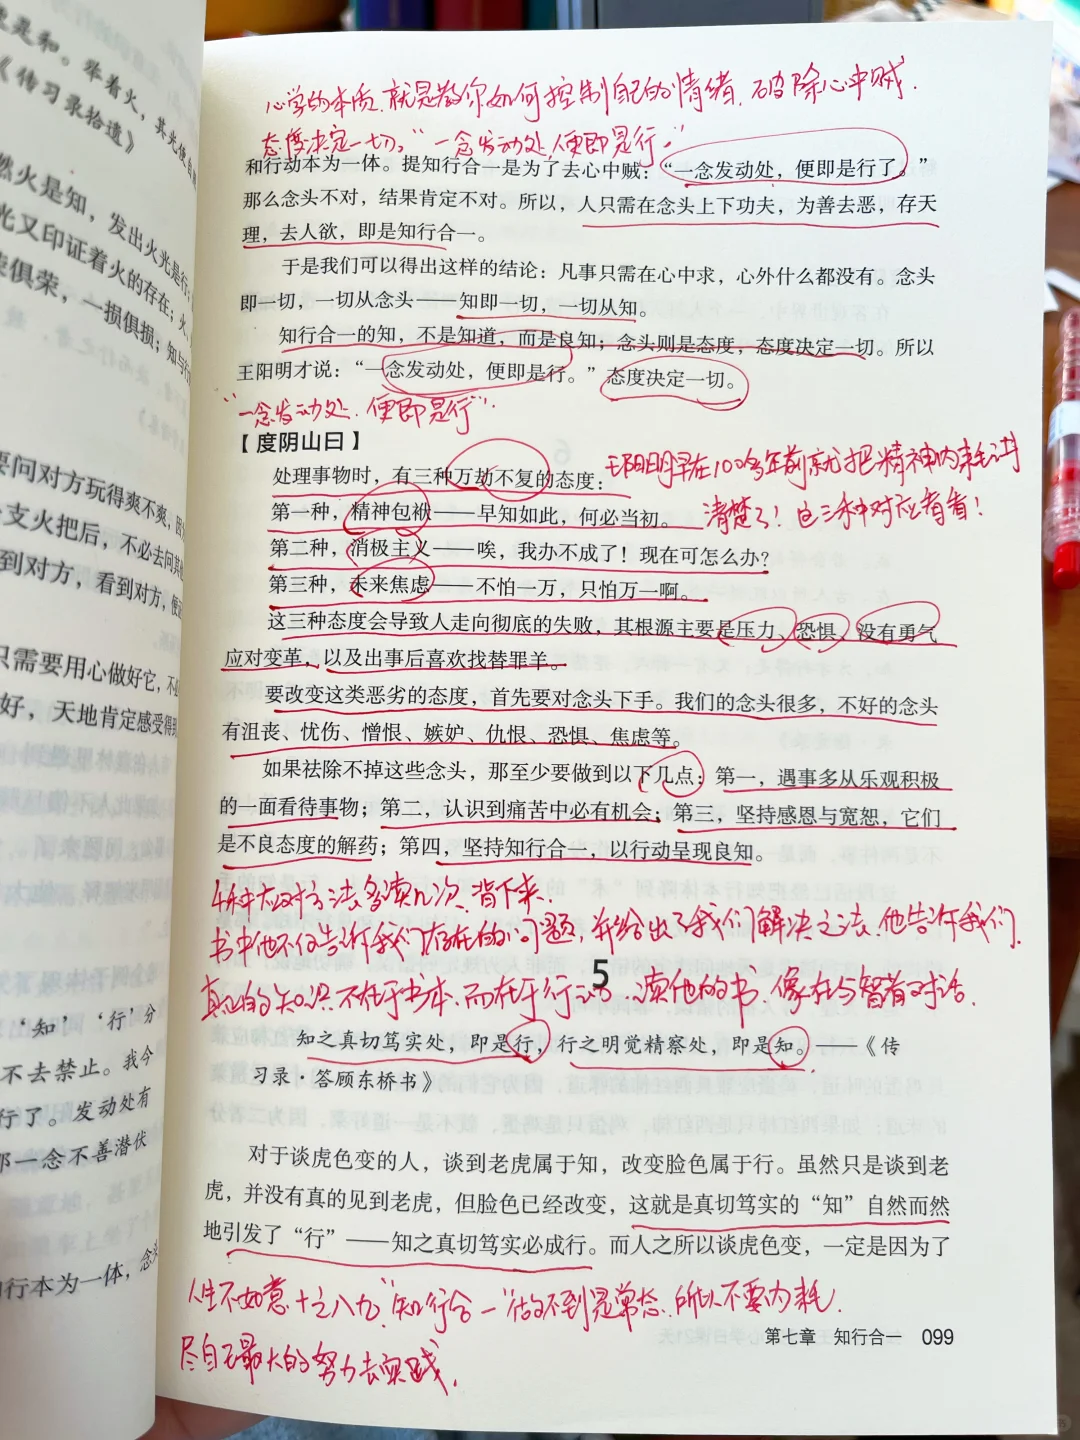 心学的本质,就是教你如何控制自己的情绪,破除心中贼.
态度决定一切。"一念发动处便即是行."
和行动本为一体。提知行合一是为了去心中贼:“一念发动处,便即是行了。”
那么念头不对,结果肯定不对。所以,人只需在念头上下功夫,为善去恶,存天
理,去人欲,即是知行合一。
于是我们可以得出这样的结论:凡事只需在心中求,心外什么都没有。念头
即一切,一切从念头——知即一切,一切从知。
知行合一的知,不是知道,而是良知;念头则是态度,态度决定一切。所以
王阳明才说:“一念发动处,便即是行。”态度决定一切。
"一念发动处.便即是行".
【度阴山曰】
处理事物时,有三种万劫不复的态度:
王阳明早在100多年前就把精神内耗讲
第一种,精神包袱——早知如此,何必当初。
清楚了!这三种对应着看!
第二种,消极主义——唉,我办不成了!现在可怎么办?
第三种,未来焦虑——不怕一万,只怕万一啊。
这三种态度会导致人走向彻底的失败,其根源主要是压力、恐惧、没有勇气
应对变革、以及出事后喜欢找替罪羊。
要改变这类恶劣的态度,首先要对念头下手。我们的念头很多,不好的念头
有沮丧、忧伤、憎恨、嫉妒、仇恨、恐惧、焦虑等。
如果祛除不掉这些念头,那至少要做到以下几点:第一,遇事多从乐观积极
的一面看待事物;第二,认识到痛苦中必有机会;第三,坚持感恩与宽恕,它们
是不良态度的解药;第四,坚持知行合一,以行动呈现良知。
4种应对方法多读几次,背下来.
书中他不仅告诉我们存在的问题,并给出了我们解决之法.他告诉我们.
真正的知识不在于书本.而在于行动.读他的书,像在与智者对话.
5
知之真切笃实处,即是行,行之明觉精察处,即是知。——《传
习录·答顾东桥书》
对于谈虎色变的人,谈到老虎属于知,改变脸色属于行。虽然只是谈到老
虎,并没有真的见到老虎,但脸色已经改变,这就是真切笃实的“知”自然而然
地引发了“行”——知之真切笃实必成行。而人之所以谈虎色变,一定是因为了
人生不如意十之八九,"知行合一"做不到是常态.所以不要内耗.
尽自己最大的努力去实践.
第七章 知行合一 099
是和。举着火,其光便自
《传习录拾遗》
然火是知,发出火光是行;
光又印证着火的存在;火
俱荣,一损俱损;知与行
要问对方玩得爽不爽,因
支火把后,不必去问其他
到对方,看到对方,便
只需要用心做好它,不
好,天地肯定感受得到
“知”“行”分
不去禁止。我今
行了。发动处有
那一念不善潜伏
行本为一体,念头